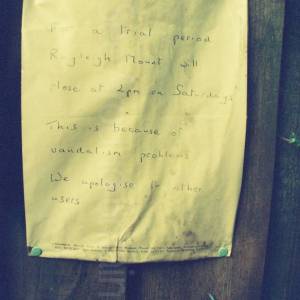 For a trial period
Rayleigh Mount will
close at 2pm on Saturdays
This is because of
vandalism problems
We apologise to other
users